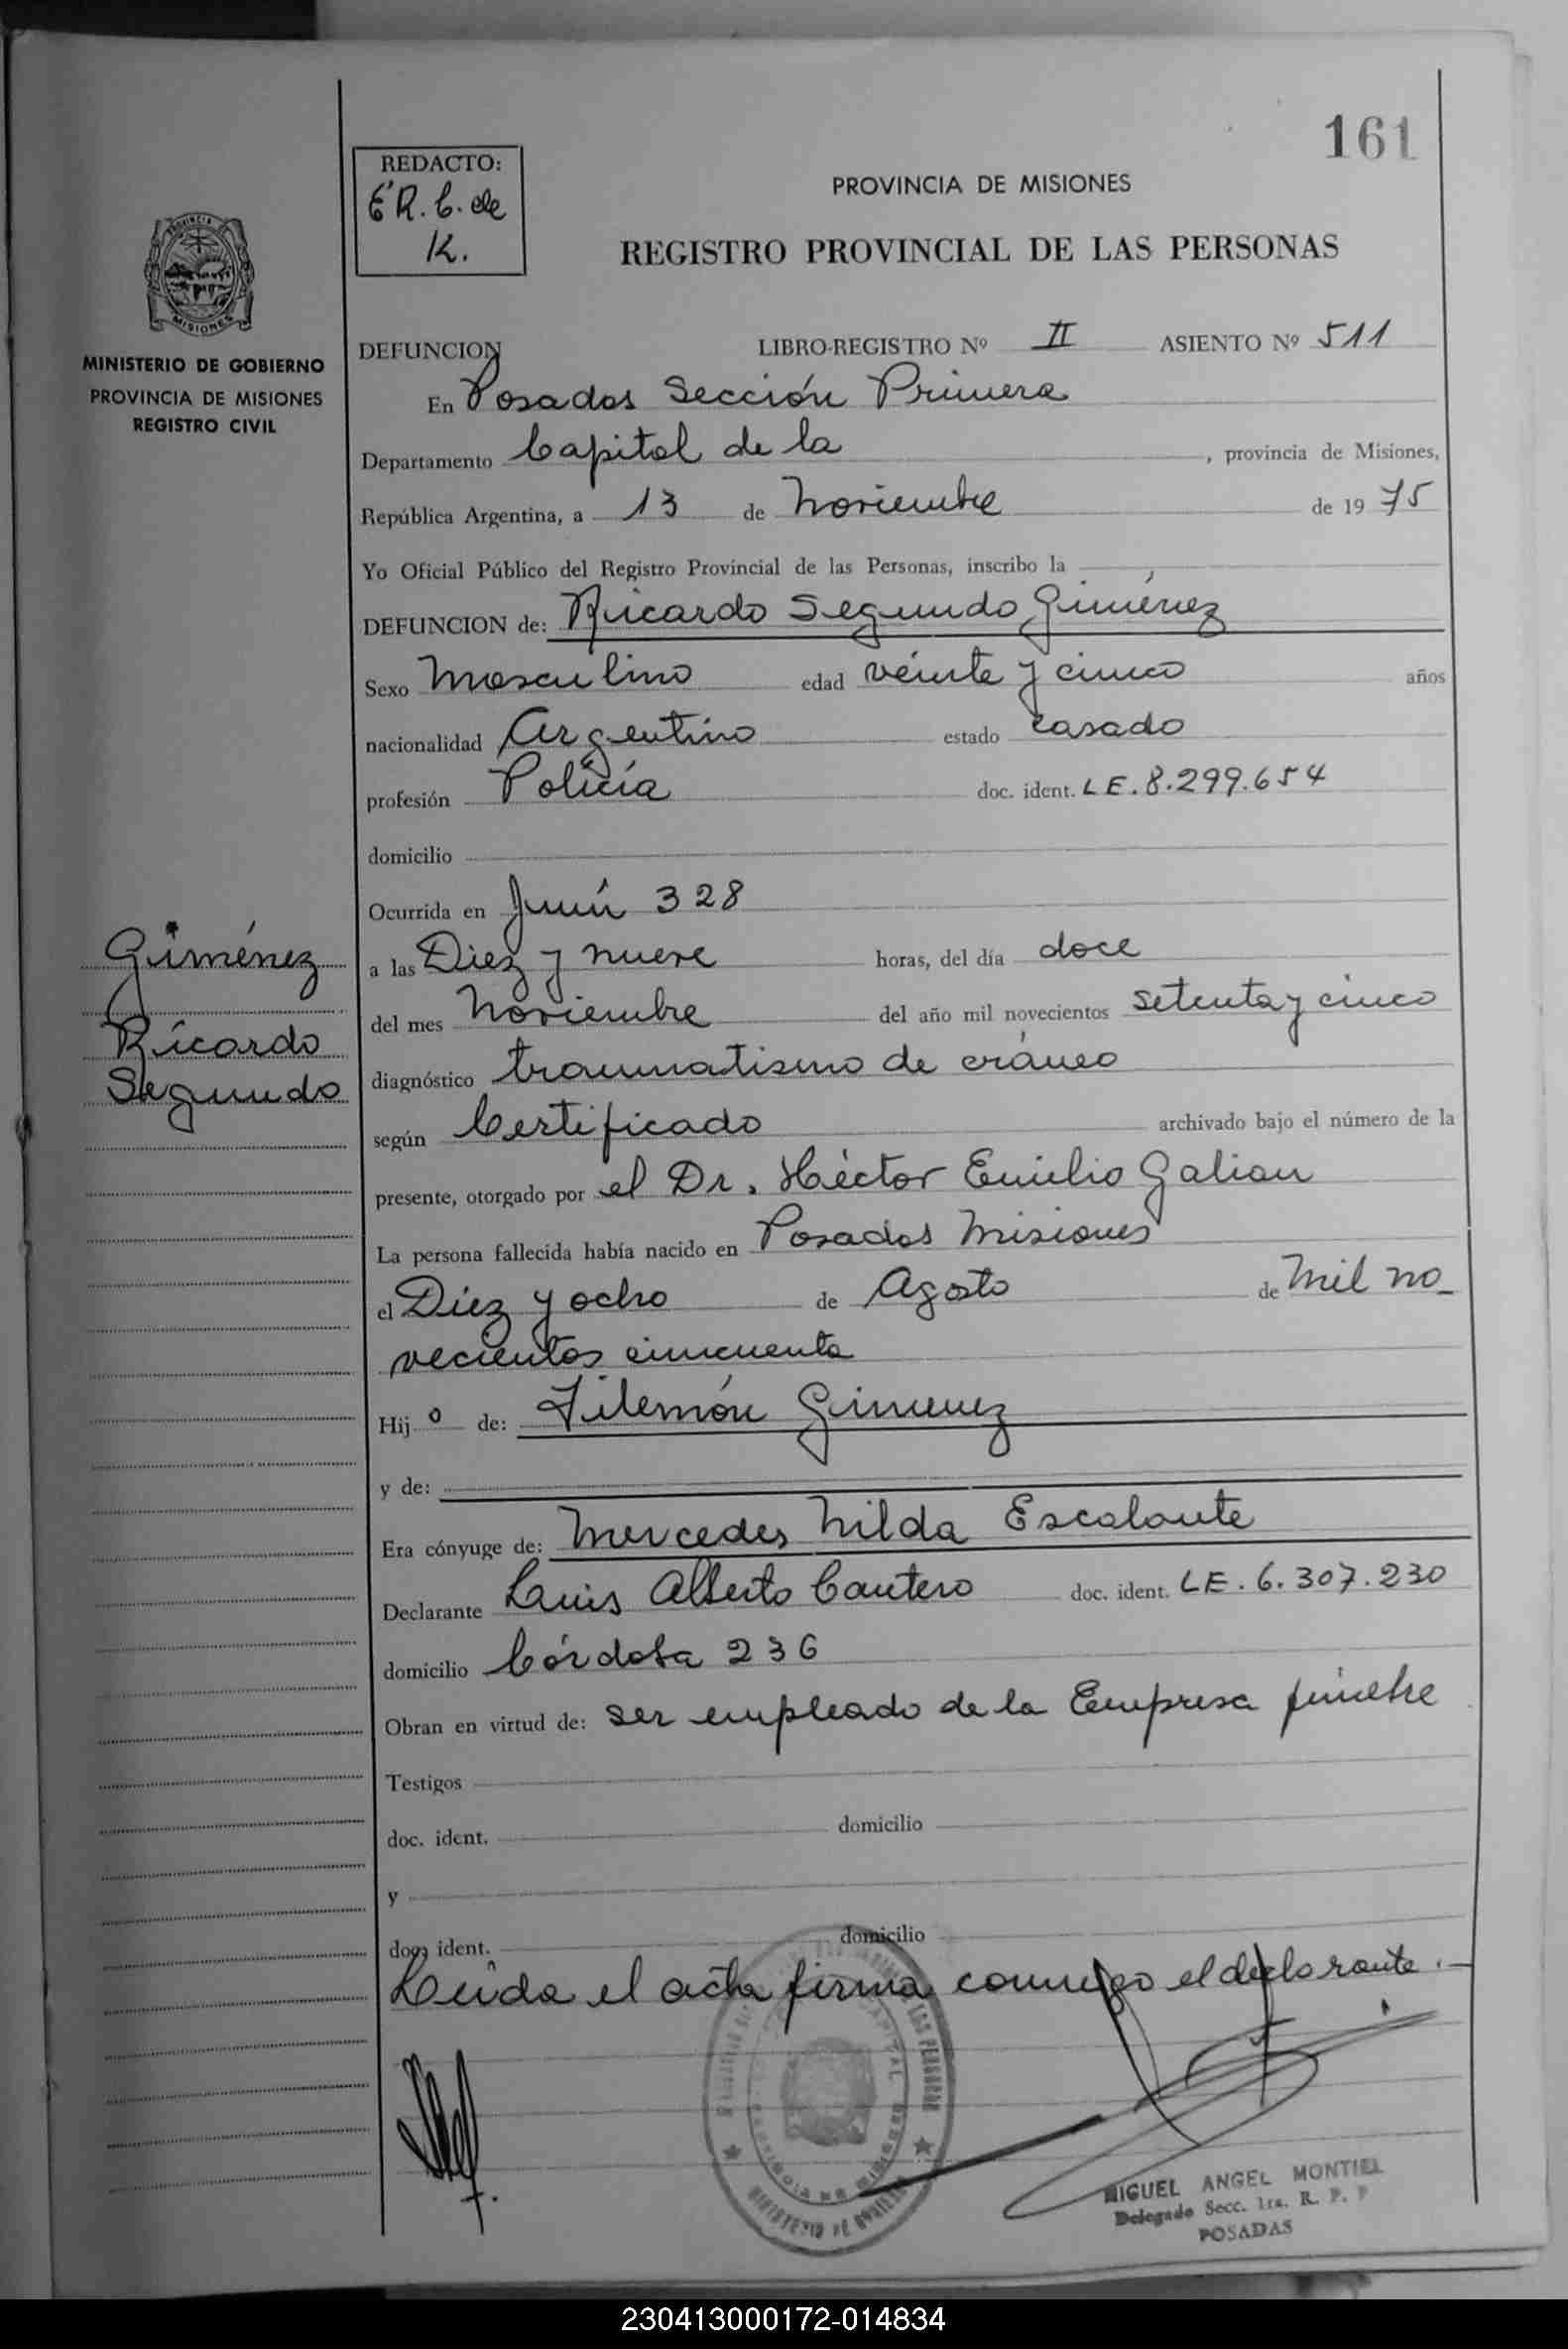 161
REDACTO:
E.R.C. de
K.
PROVINCIA DE MISIONES
REGISTRO PROVINCIAL DE LAS PERSONAS
PROVINCIA
MISIONES
MINISTERIO DE GOBIERNO
PROVINCIA DE MISIONES
REGISTRO CIVIL
DEFUNCION LIBRO-REGISTRO Nº II ASIENTO Nº 511
En Posadas Sección Primera
Departamento Capital de la , provincia de Misiones,
República Argentina, a 13 de Noviembre de 1975
Yo Oficial Público del Registro Provincial de las Personas, inscribo la
DEFUNCION de: Ricardo Segundo Giménez
Sexo Masculino edad veinte y cinco años
nacionalidad Argentino estado casado
profesión Policía doc. ident. L E. 8.299.654
domicilio
Ocurrida en Junín 328
a las Diez y nueve horas, del día doce
del mes Noviembre del año mil novecientos setenta y cinco
diagnóstico traumatismo de cráneo
según Certificado archivado bajo el número de la
presente, otorgado por el Dr. Héctor Emilio Galian
La persona fallecida había nacido en Posadas Misiones
el Diez y ocho de Agosto de Mil no_
vecientos cincuenta
Hij o de: Filemón Gimenez
y de:
Era cónyuge de: Mercedes Nilda Escalante
Declarante Luis Alberto Cantero doc. ident. L E. 6.307.230
domicilio Córdoba 236
Obran en virtud de: ser empleado de la Empresa fúnebre
Testigos
doc. ident. domicilio
y
doc. ident. domicilio
Leída el acta firma conmigo el declarante.-
Giménez
Ricardo
Segundo
MIGUEL ANGEL MONTIEL
Delegado Secc. 1ra. R. P. P
POSADAS
230413000172-014834